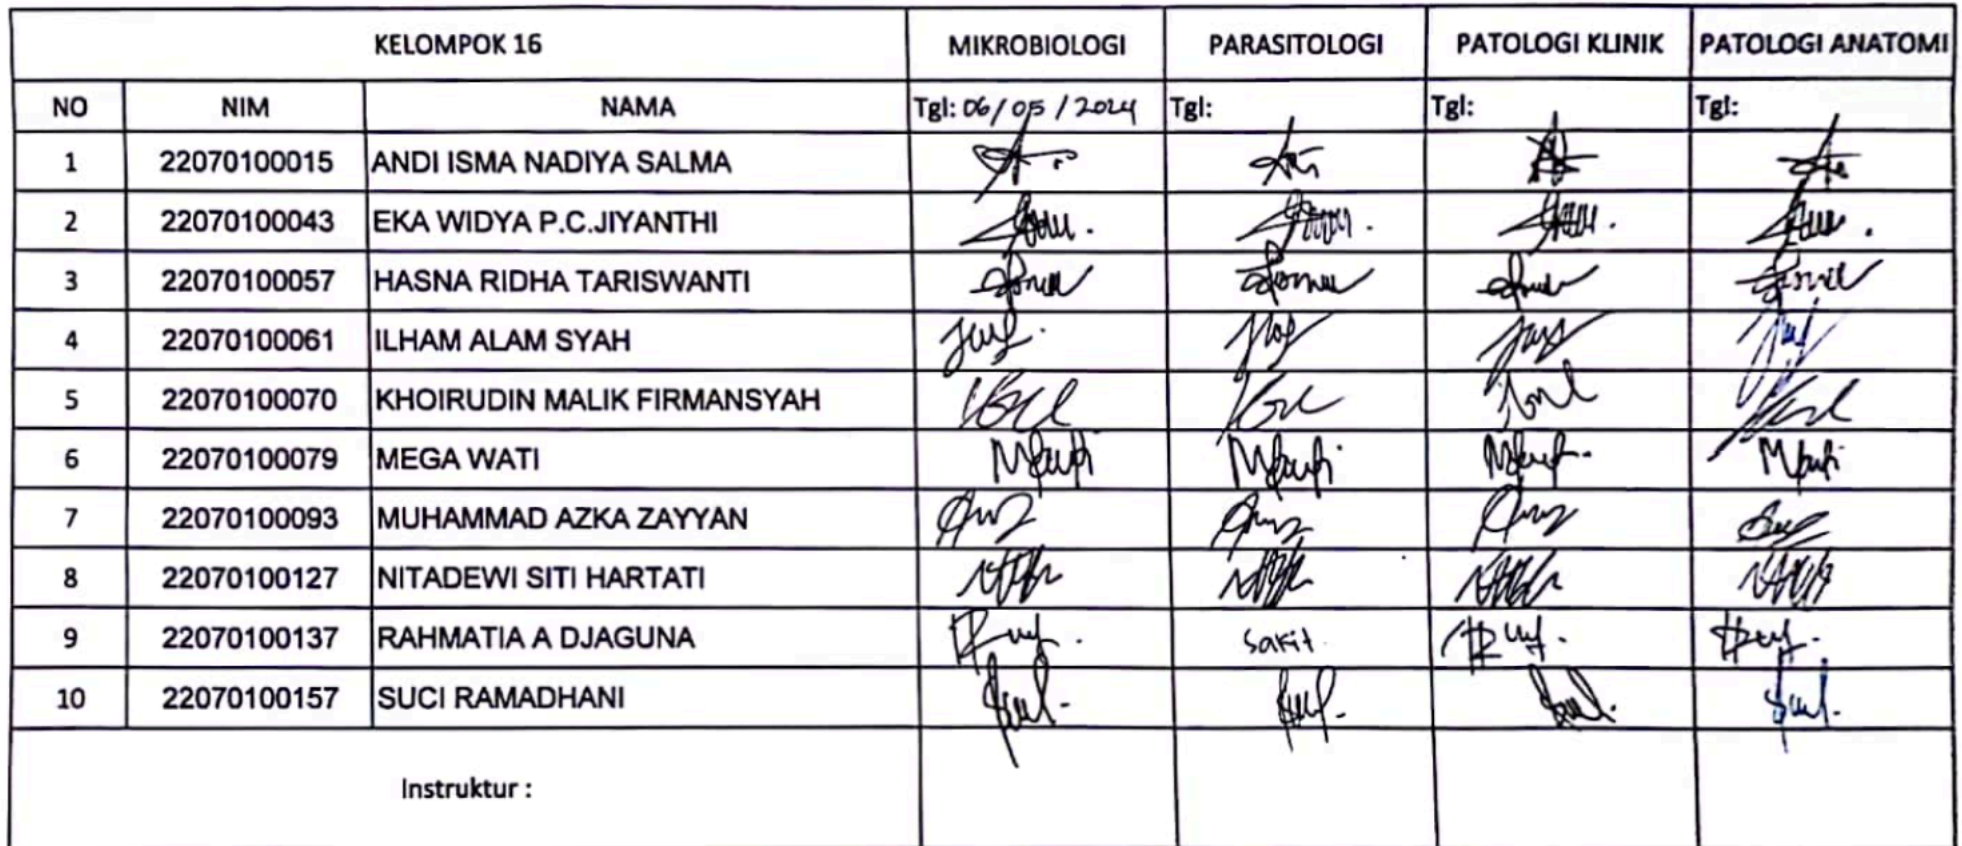 KELOMPOK 16 MIKROBIOLOGI PARASITOLOGI PATOLOGI KLINIK PATOLOGI ANATOMI
NO NIM NAMA Tgl: 06/05/2024 Tgl: Tgl: Tgl:
1 22070100015 ANDI ISMA NADIYA SALMA
2 22070100043 EKA WIDYA P.C.JIYANTHI
3 22070100057 HASNA RIDHA TARISWANTI
4 22070100061 ILHAM ALAM SYAH
5 22070100070 KHOIRUDIN MALIK FIRMANSYAH
6 22070100079 MEGA WATI
7 22070100093 MUHAMMAD AZKA ZAYYAN
8 22070100127 NITADEWI SITI HARTATI
9 22070100137 RAHMATIA A DJAGUNA sakit.
10 22070100157 SUCI RAMADHANI
Instruktur :